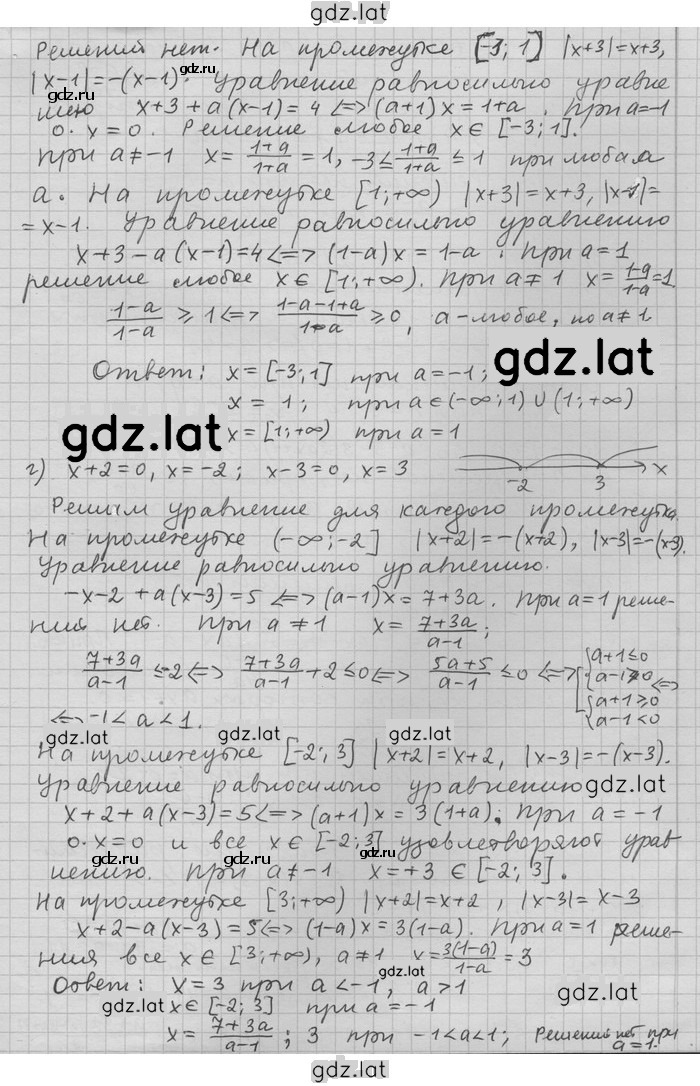 gdz.lat
Решений нет. На промежутке [-3; 1] |x+3|=x+3,
|x-1|=-(x-1). Уравнение равносильно уравне
нию x+3+a(x-1)=4 <=> (a+1)x=1+a. При a=-1
0·x=0. Решение любое x∈[-3;1].
При a≠-1 x= (1+a)/(1+a) = 1, -3≤ (1+a)/(1+a) ≤1 при любом
a. На промежутке [1;+∞) |x+3|=x+3, |x-1|=
=x-1. Уравнение равносильно уравнению
x+3-a(x-1)=4<=> (1-a)x=1-a. При a=1
решение любое x∈[1;+∞). При a≠1 x= (1-a)/(1-a) =1.
(1-a)/(1-a) ≥1<=> (1-a-1+a)/(1-a) ≥0, a-любое, но a≠1
gdz.lat
Ответ: x=[-3;1] при a=-1;
x = 1; при a∈(-∞;1)∪(1;+∞)
gdz.lat
x=[1;+∞) при a=1
г) x+2=0, x=-2; x-3=0, x=3
-2 3 x
Решим уравнение для каждого промежутка.
На промежутке (-∞;-2] |x+2|=-(x+2), |x-3|=-(x-3).
Уравнение равносильно уравнению.
-x-2+a(x-3)=5 <=> (a-1)x=7+3a. При a=1 реше-
ний нет. При a≠1 x= (7+3a)/(a-1);
(7+3a)/(a-1) ≤-2<=> (7+3a)/(a-1) +2≤0<=> (5a+5)/(a-1) ≤0 <=> [{a+1≤0 {a-1>0 {a+1≥0 {a-1<0 <=>
<=> -1<a<1.
gdz.lat
На промежутке [-2; 3] |x+2|=x+2, |x-3|=-(x-3).
Уравнение равносильно уравнению
gdz.lat
x+2+a(x-3)=5<=>(a+1)x=3(1+a). При a=-1
0·x=0 и все x∈[-2;3] удовлетворяют урав
gdz.lat
нению. При a≠-1 x=+3 ∈[-2; 3].
На промежутке [3;+∞) |x+2|=x+2, |x-3|=x-3
x+2-a(x-3)=5<=>(1-a)x=3(1-a). При a=1 реше-
ния все x∈[3;+∞), a≠1 x= 3(1-a)/(1-a) =3
gdz.lat
Ответ: x=3 при a<-1, a>1
gdz.lat
gdz.lat
x∈[-2; 3] при a=-1
x= (7+3a)/(a-1); 3 при -1<a<1; Решений нет при
a=1.
gdz.lat
gdz.lat
gdz.lat